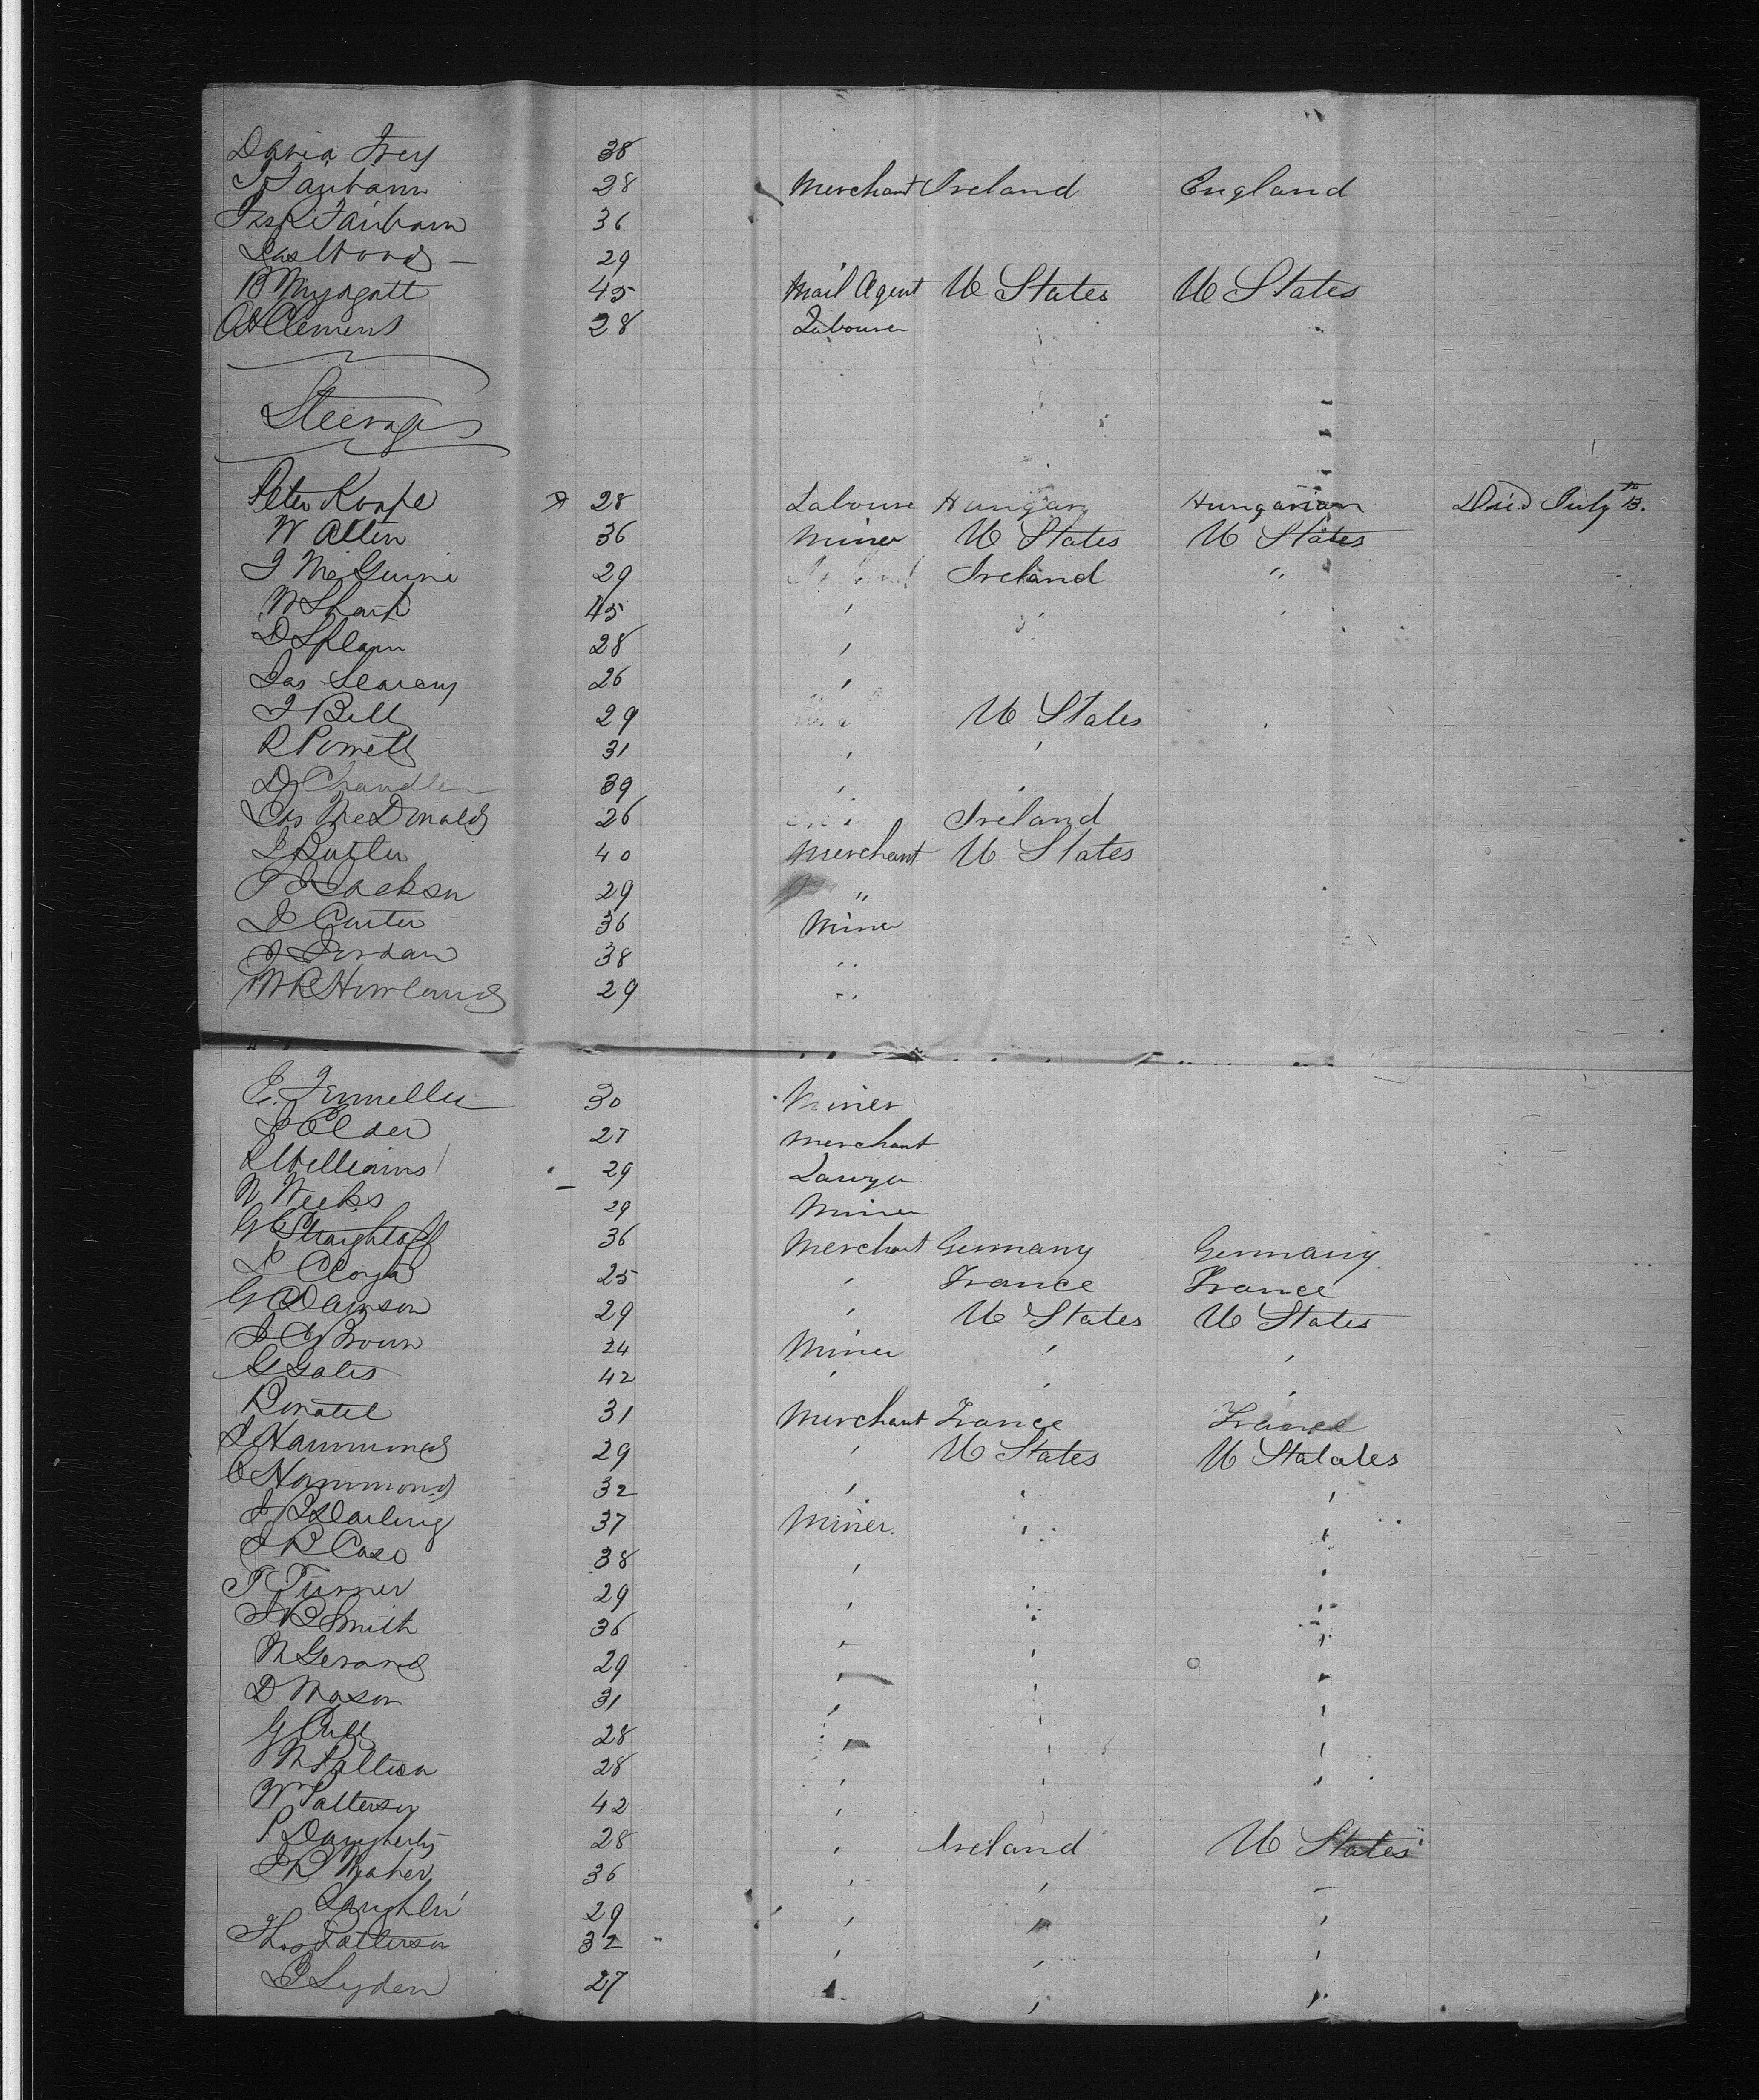 David Frey 38
J Fairbairn 28 Merchant Ireland England
Jas R Fairbairn 36
Jas Wood 29
B Mygatt 45 Mail Agent U States U States
A Clemens 28 Labourer
Steerage
Peter 28 Laboure Hungary Hungarian Died July 13th.
W Allen 36 Miner U States U States
J McGuire 29 Ireland "
W Sharp 45 ' " '
D Splean 28 '
Jas Searcy 26 '
J Bell 29 U States
R Powell 31 ' '
D Chandler 39 '
Jas McDonald 26 Ireland
J Butler 40 Merchant U States
Jackson 29 "
J Carter 36 Miner
J Jordan 38 "
W R Howland 29 "
E. 30 Miner
J Elder 27 Merchant
R Williams 29 Lawyer
N Weeks 29 Miner
G C 36 Merchant Germany Germany
J 25 ' France France
G Dawson 29 ' U States U States
J C Brown 24 Miner ' '
G Gates 42 ' ' '
31 Merchant France France
J Hammond 29 ' U States U Statates
C Hammond 32 ' ' '
J B Darling 37 Miner " '
J B Case 38 ' '
T Turner 29 ' " "
J B Smith 36 ' " "
N Gerand 29 ' ' '
D Mason 31 ' ' '
G 28 ' ' '
28 ' ' '
W Patterson 42 ' ' '
P Daugherty 28 ' Ireland U States
J B Maher 36 ' ' '
Laughlin 29 ' " '
Thos Patterson 32 ' ' '
Lyden 27 ' ' '